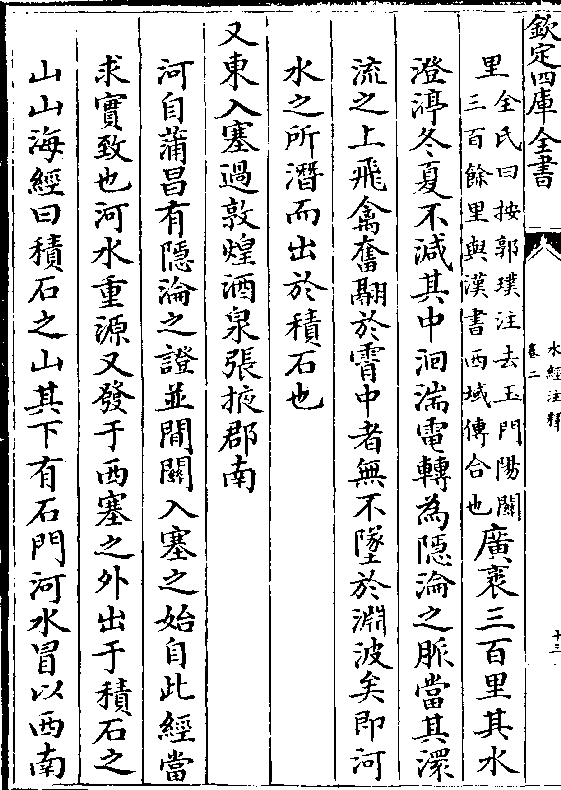 欽定四庫全書
水經注釋
卷二
十三
里全氏曰按郭璞注去玉門陽關
三百餘里與漢書西域傳合也廣袤三百里其水
澄渟冬夏不減其中洄湍電轉為隱淪之脈當其澴
流之上飛禽奮翮於霄中者無不墜於淵波矣即河
水之所潛而出於積石也
又東入塞過敦煌酒泉張掖郡南
河自蒲昌有隱淪之證並間關入塞之始自此經當
求實致也河水重源又發于西塞之外出于積石之
山山海經曰積石之山其下有石門河水冒以西南